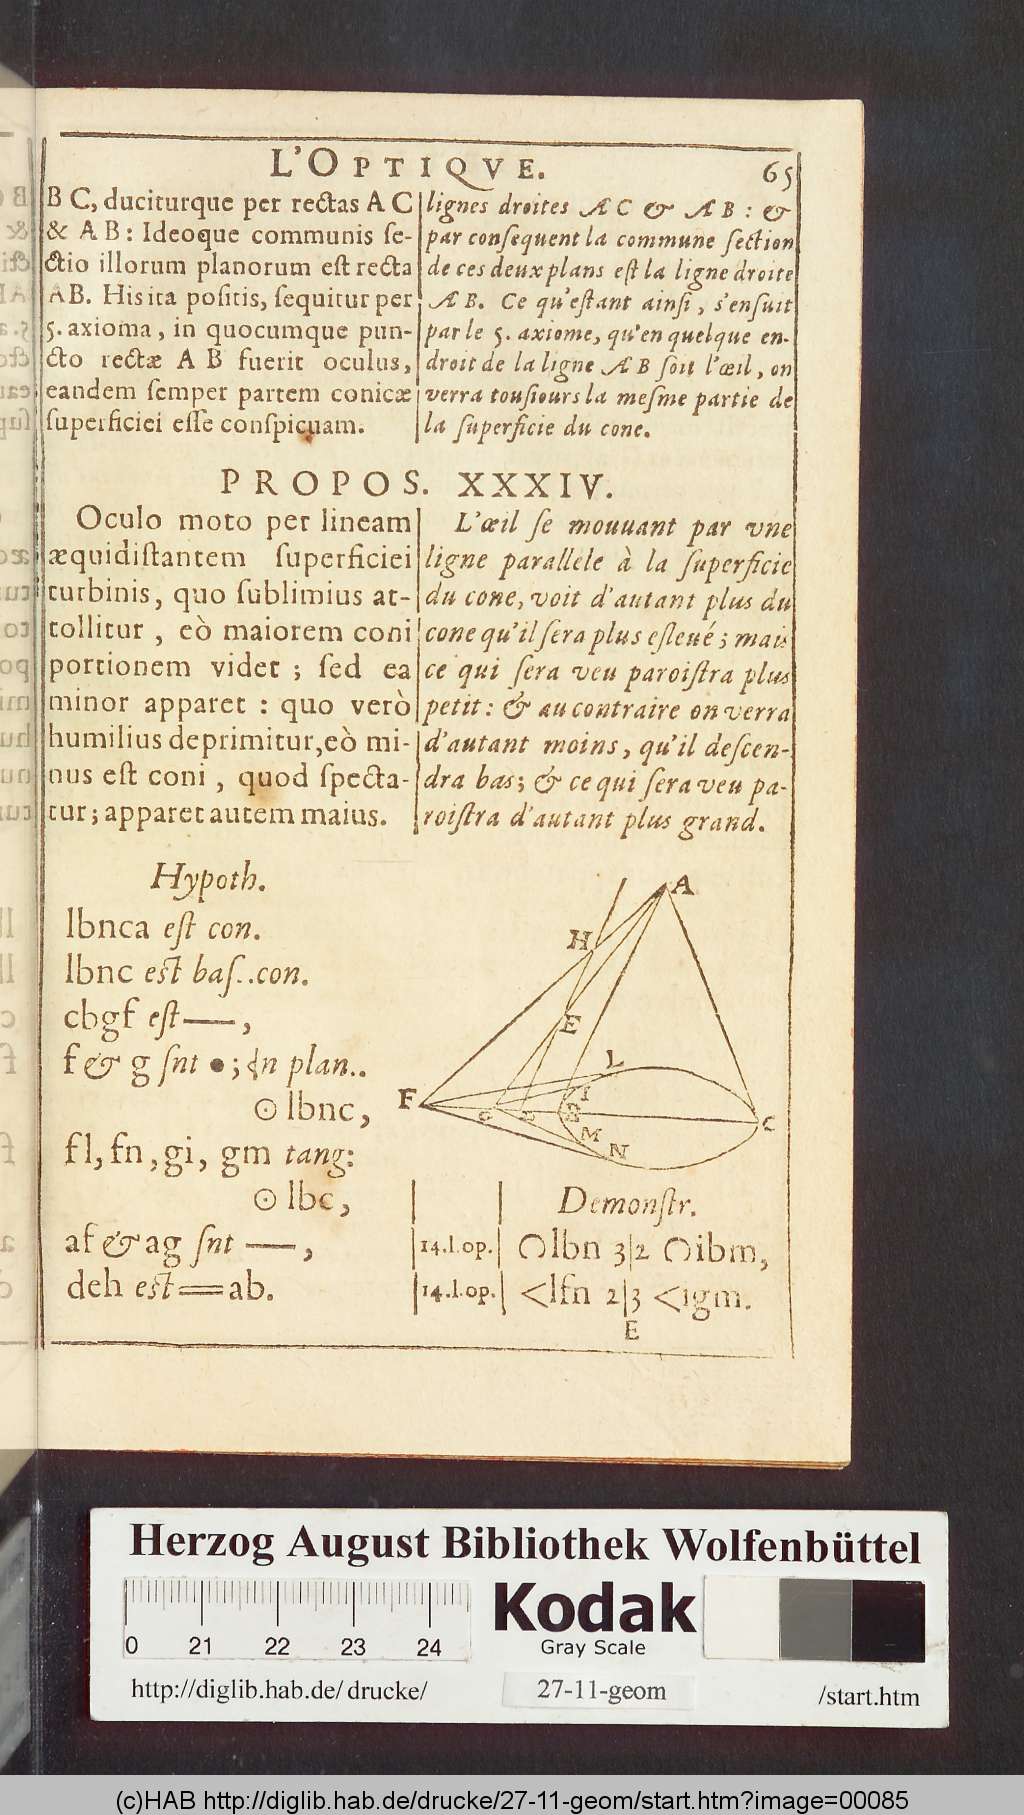 L'OPTIQVE. 65
B C, duciturque per rectas A C
& A B : Ideoque communis se-
ctio illorum planorum est recta
AB. His ita positis, sequitur per
5. axioma, in quocumque pun-
cto rectæ A B fuerit oculus,
eandem semper partem conicæ
superficiei esse conspicuam.
lignes droites A C & A B : &
par consequent la commune section
de ces deux plans est la ligne droite
A B. Ce qu'estant ainsi, s'ensuit
par le 5. axiome, qu'en quelque en-
droit de la ligne A B soit l'œil, on
verra tousiours la mesme partie de
la superficie du cone.
PROPOS. XXXIV.
Oculo moto per lineam
æquidistantem superficiei
turbinis, quo sublimius at-
tollitur, eò maiorem coni
portionem videt ; sed ea
minor apparet : quo verò
humilius deprimitur, eò mi-
nus est coni, quod specta-
tur ; apparet autem maius.
L'œil se mouuant par vne
ligne parallele à la superficie
du cone, voit d'autant plus du
cone qu'il sera plus esleué ; mais
ce qui sera veu paroistra plus
petit : & au contraire on verra
d'autant moins, qu'il descen-
dra bas; & ce qui sera veu pa-
roistra d'autant plus grand.
Hypoth.
lbnca est con.
lbnc est bas. .con.
cbgf est —,
f & g snt ●; in plan..
⊙ lbnc,
fl, fn, gi, gm tang:
⊙ lbc,
af & ag snt —,
deh est = ab.
A
H
E
L
F
I
G
B
C
M
N
Demonstr.
14.1.op. ∩lbn 3|2 ∩ibm,
14.1.op. <lfn 2|3 <igm.
E
Herzog August Bibliothek Wolfenbüttel
0 21 22 23 24
Kodak
Gray Scale
http://diglib.hab.de/drucke/ 27-11-geom /start.htm
(c)HAB http://diglib.hab.de/drucke/27-11-geom/start.htm?image=00085